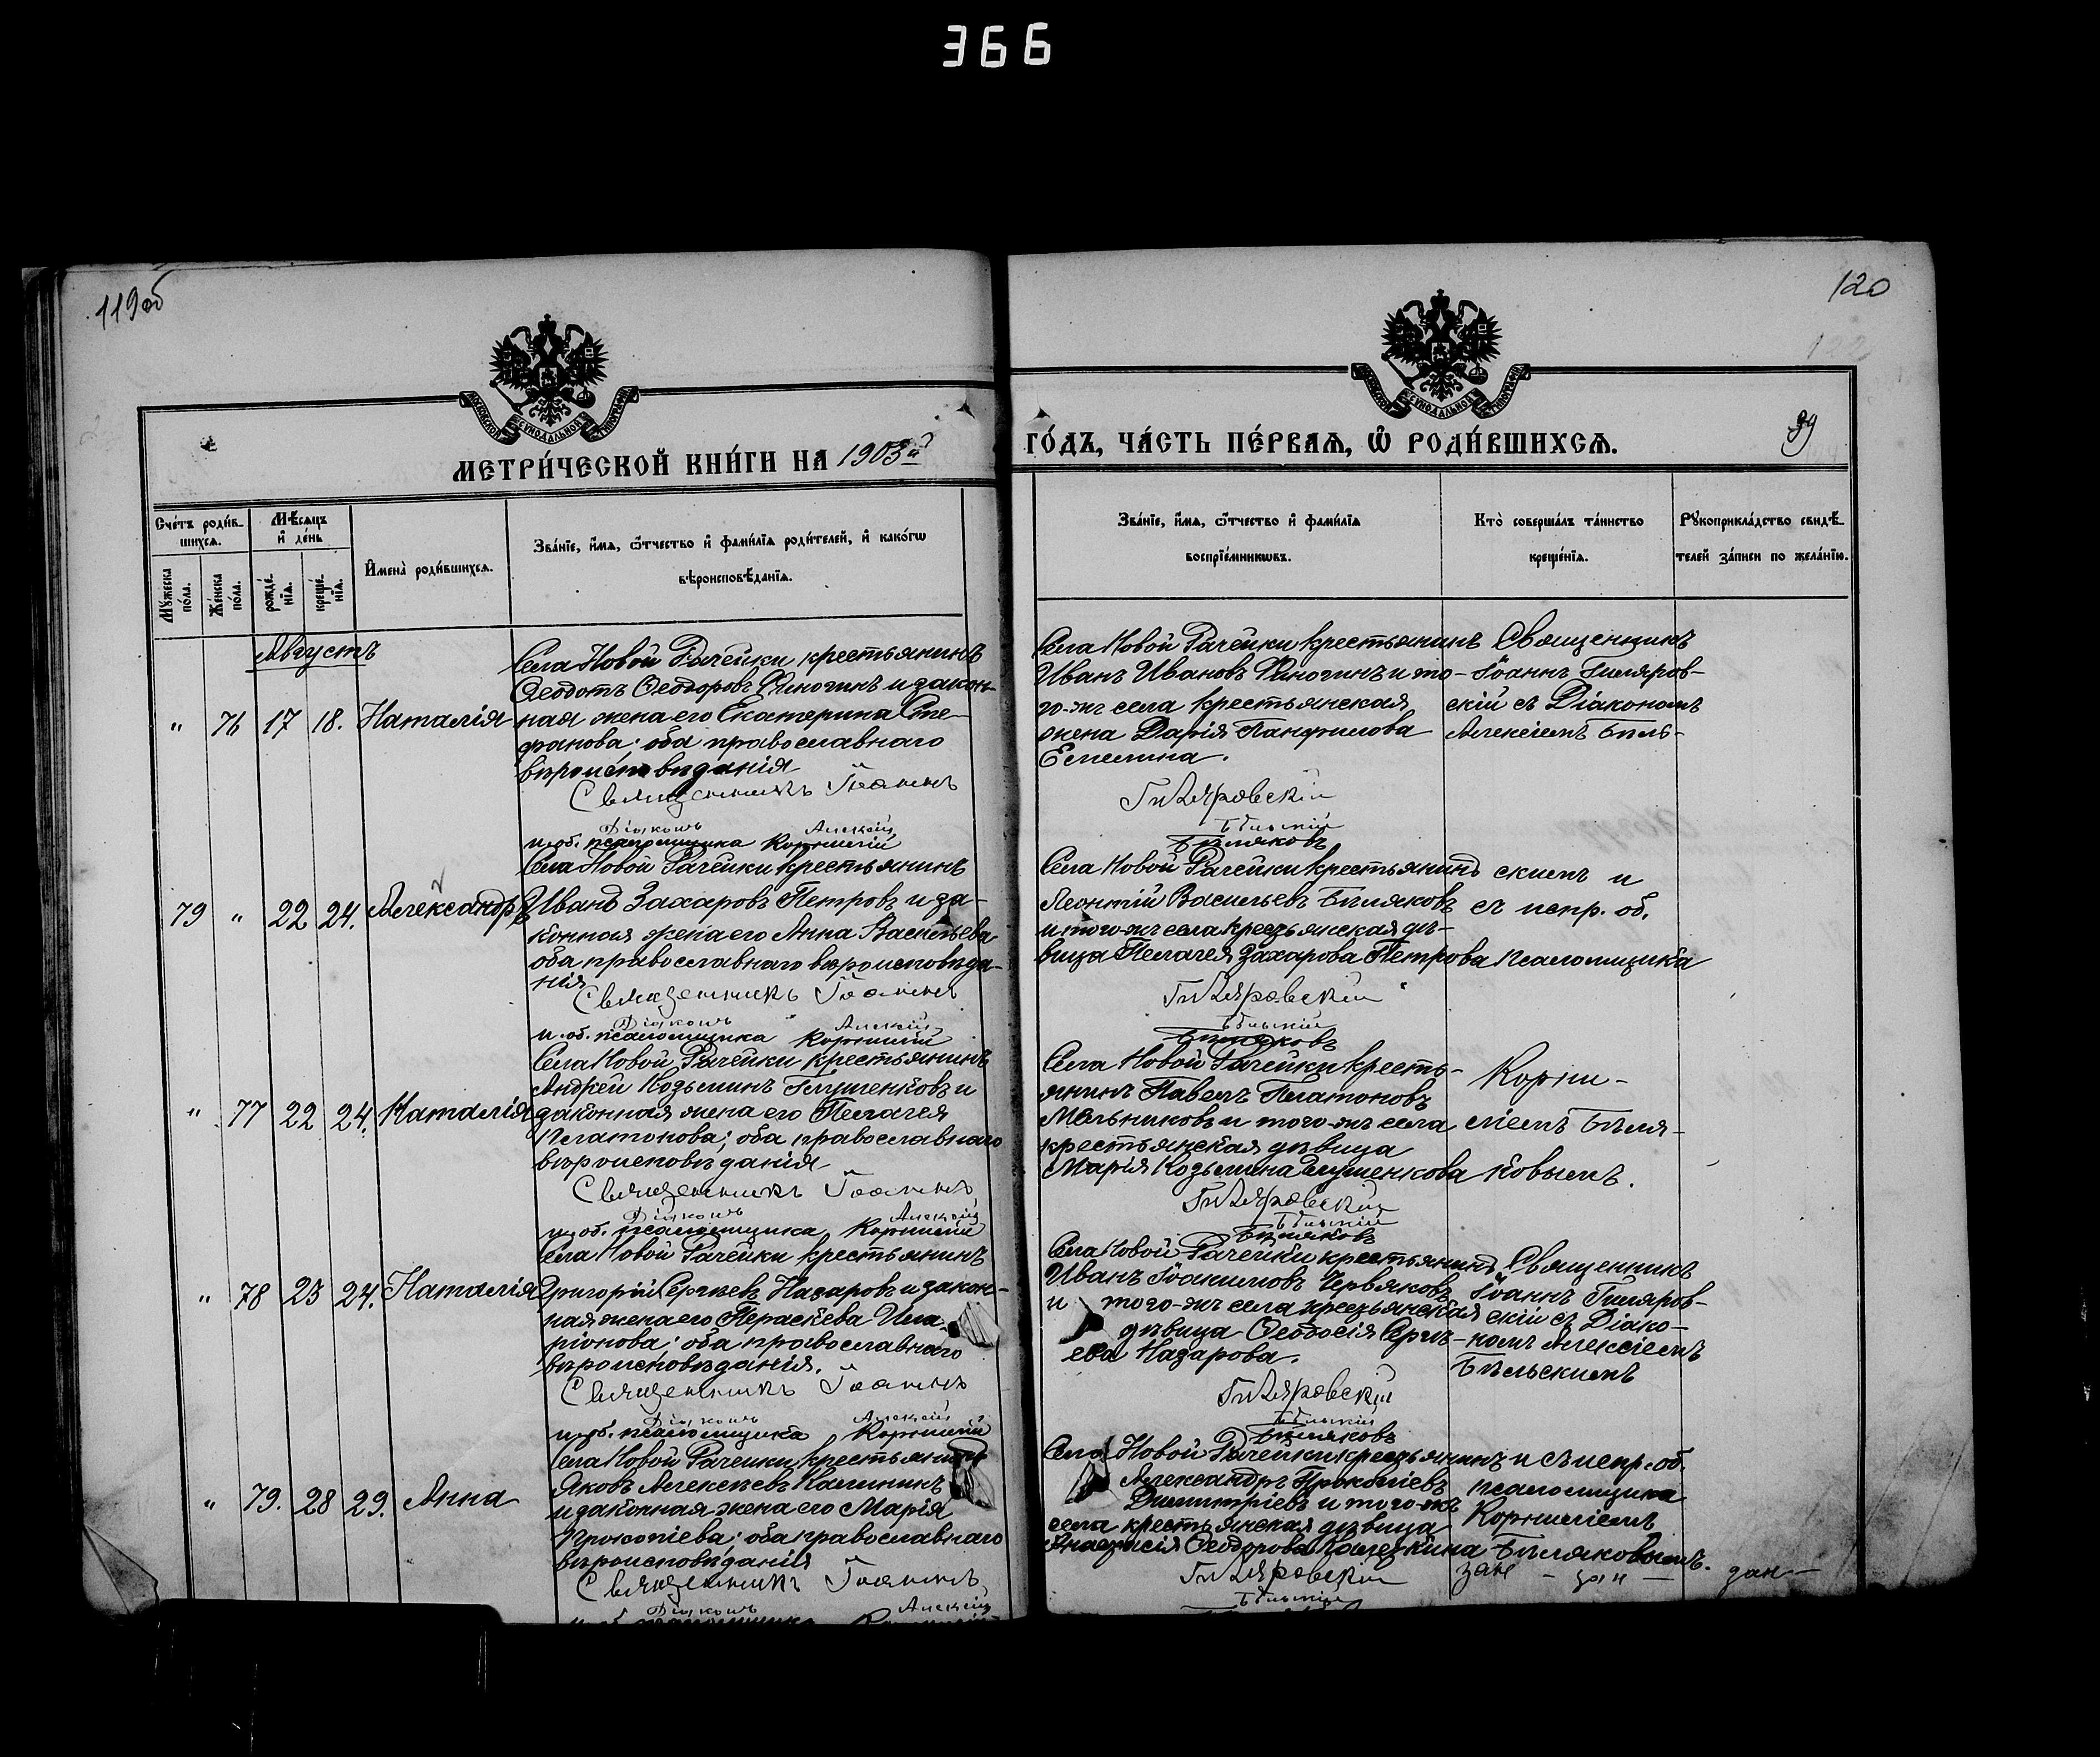 366
119об
120
МЕТРИ́ЧЕСКОЙ КНИ́ГИ НА 1903й
ГО́ДЪ, ЧА́СТЬ ПЕ́РВАѦ, Ѽ РОДИ́ВШИХСѦ.
89
Сче́тъ роди́в-
шихсѧ.
Мѣ́сѧцъ
и҆ де́нь
Мꙋ́жеска
по́ла.
Же́нска
по́ла.
рожде́-
нїѧ.
креще́-
нїѧ.
И҆мена̀ роди́вшихсѧ.
Зва́нїе, и҆́мѧ, ѻ҆́тчество и҆ фами́лїѧ роди́телей, и҆ како́гѡ
вѣроисповѣ́данїѧ.
Зва́нїе, и҆́мѧ, ѻ҆́тчество и҆ фами́лїѧ
воспрїе́мникѡвъ.
Кто̀ соверша́лъ та́инство
креще́нїѧ.
Рꙋкоприкла́дство свидѣ́-
телей за́писи по жела́нїю.
Августъ
" 76 17 18. Наталія
Села Новой Рачейки крестьянинъ
Ѳеодотъ Ѳеодоровъ Финогинъ и закон-
ная жена его Екатерина Сте-
фанова; оба православнаго
вѣроисповѣданія
Священникъ Іоаннъ
Діаконъ Алексій
и. об. псаломщика Корнилій
Села Новой Рачейки крестьянинъ
Иванъ Ивановъ Финогинъ и то-
го-же села крестьянская
жена Дарія Панфилова
Емелина.
Гиляровскій
Бѣльскій
Бѣляковъ
Священникъ
Іоаннъ Гиляров-
скій съ Діакономъ
Алексіемъ Бѣль-
79 " 22 24. Александръ
Села Новой Рачейки крестьянинъ
Иванъ Захаровъ Петровъ и за-
конная жена его Анна Васильева
оба православнаго вѣроисповѣда-
нія
Священникъ Іоаннъ
Діаконъ Алексій
и. об. псаломщика Корнилій
Села Новой Рачейки крестьянинъ
Леонтій Васильевъ Бѣляковъ
и того-же села крестьянская дѣ-
вица Пелагея Захарова Петрова
Гиляровскій
Бѣльскій
Бѣляковъ
скимъ и
съ испр. об.
псаломщика
" 77 22 24. Наталія
Села Новой Рачейки крестьянинъ
Андрей Козьминъ Глушенковъ и
законная жена его Пелагея
Платонова; оба православнаго
вѣроисповѣданія
Священникъ Іоаннъ
Діаконъ Алексій
и. об. псаломщика Корнилій
Села Новой Рачейки кресть-
янинъ Павелъ Платоновъ
Мельниковъ и того-же села
крестьянская дѣвица
Марія Козьмина Глушенкова
Гиляровскій
Бѣльскій
Бѣляковъ
Корни-
ліемъ Бѣля-
ковымъ.
" 78 23 24. Наталія
Села Новой Рачейки крестьянинъ
Григорій Сергѣевъ Назаровъ и закон-
ная жена его Пераскева Ила-
ріонова; оба православнаго
вѣроисповѣданія.
Священникъ Іоаннъ
Діаконъ Алексій
и. об. псаломщика Корнилій
Села Новой Рачейки крестьянинъ
Иванъ Іоакимовъ Червяковъ
и того-же села крестьянская
дѣвица Ѳеодосія Сергѣ-
ева Назарова.
Гиляровскій
Бѣльскій
Бѣляковъ
Священникъ
Іоаннъ Гиляров-
скій съ Діако-
номъ Алексіемъ
Бѣльскимъ
" 79. 28 29. Анна
Села Новой Рачейки крестьянинъ
Яковъ Алексѣевъ Калининъ
и законная жена его Марія
Прокопіева; оба православнаго
вѣроисповѣданія
Священникъ Іоаннъ
Діаконъ Алексій
Села Новой Рачейки крестьянинъ
Александръ Прокопіевъ
Димитріевъ и того-же
села крестьянская дѣвица
Анастасія Ѳеодорова
Гиляровскій
Бѣльскій
и съ испр. об.
псаломщика
Корниліемъ
Бѣляковымъ.